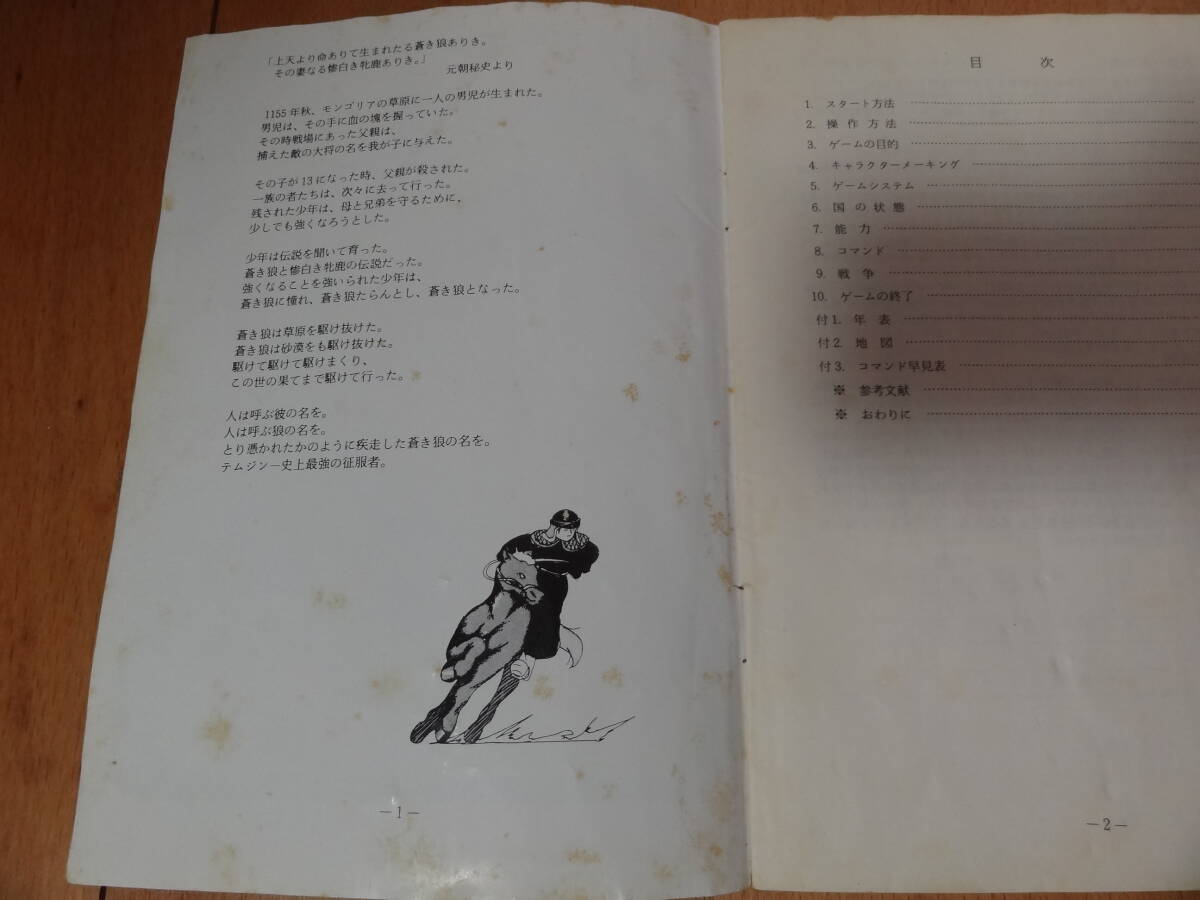 「上天より命ありて生まれたる蒼き狼ありき。
その妻なる惨白き牝鹿ありき。」
元朝秘史より
1155年秋、モンゴリアの草原に一人の男児が生まれた。
男児は、その手に血の塊を握っていた。
その時戦場にあった父親は、
捕えた敵の大将の名を我が子に与えた。
その子が13になった時、父親が殺された。
一族の者たちは、次々に去って行った。
残された少年は、母と兄弟を守るために、
少しでも強くなろうとした。
少年は伝説を聞いて育った。
蒼き狼と惨白き牝鹿の伝説だった。
強くなることを強いられた少年は、
蒼き狼に憧れ、蒼き狼たらんとし、蒼き狼となった。
蒼き狼は草原を駆け抜けた。
蒼き狼は砂漠をも駆け抜けた。
駆けて駆けて駆けまくり、
この世の果てまで駆けて行った。
人は呼ぶ彼の名を。
人は呼ぶ狼の名を。
とり憑かれたかのように疾走した蒼き狼の名を。
テムジン―史上最強の征服者。
―1―
目 次
1. スタート方法
2. 操作方法
3. ゲームの目的
4. キャラクターメーキング
5. ゲームシステム
6. 国の状態
7. 能力
8. コマンド
9. 戦争
10. ゲームの終了
付1. 年表
付2. 地図
付3. コマンド早見表
※ 参考文献
※ おわりに
―2―